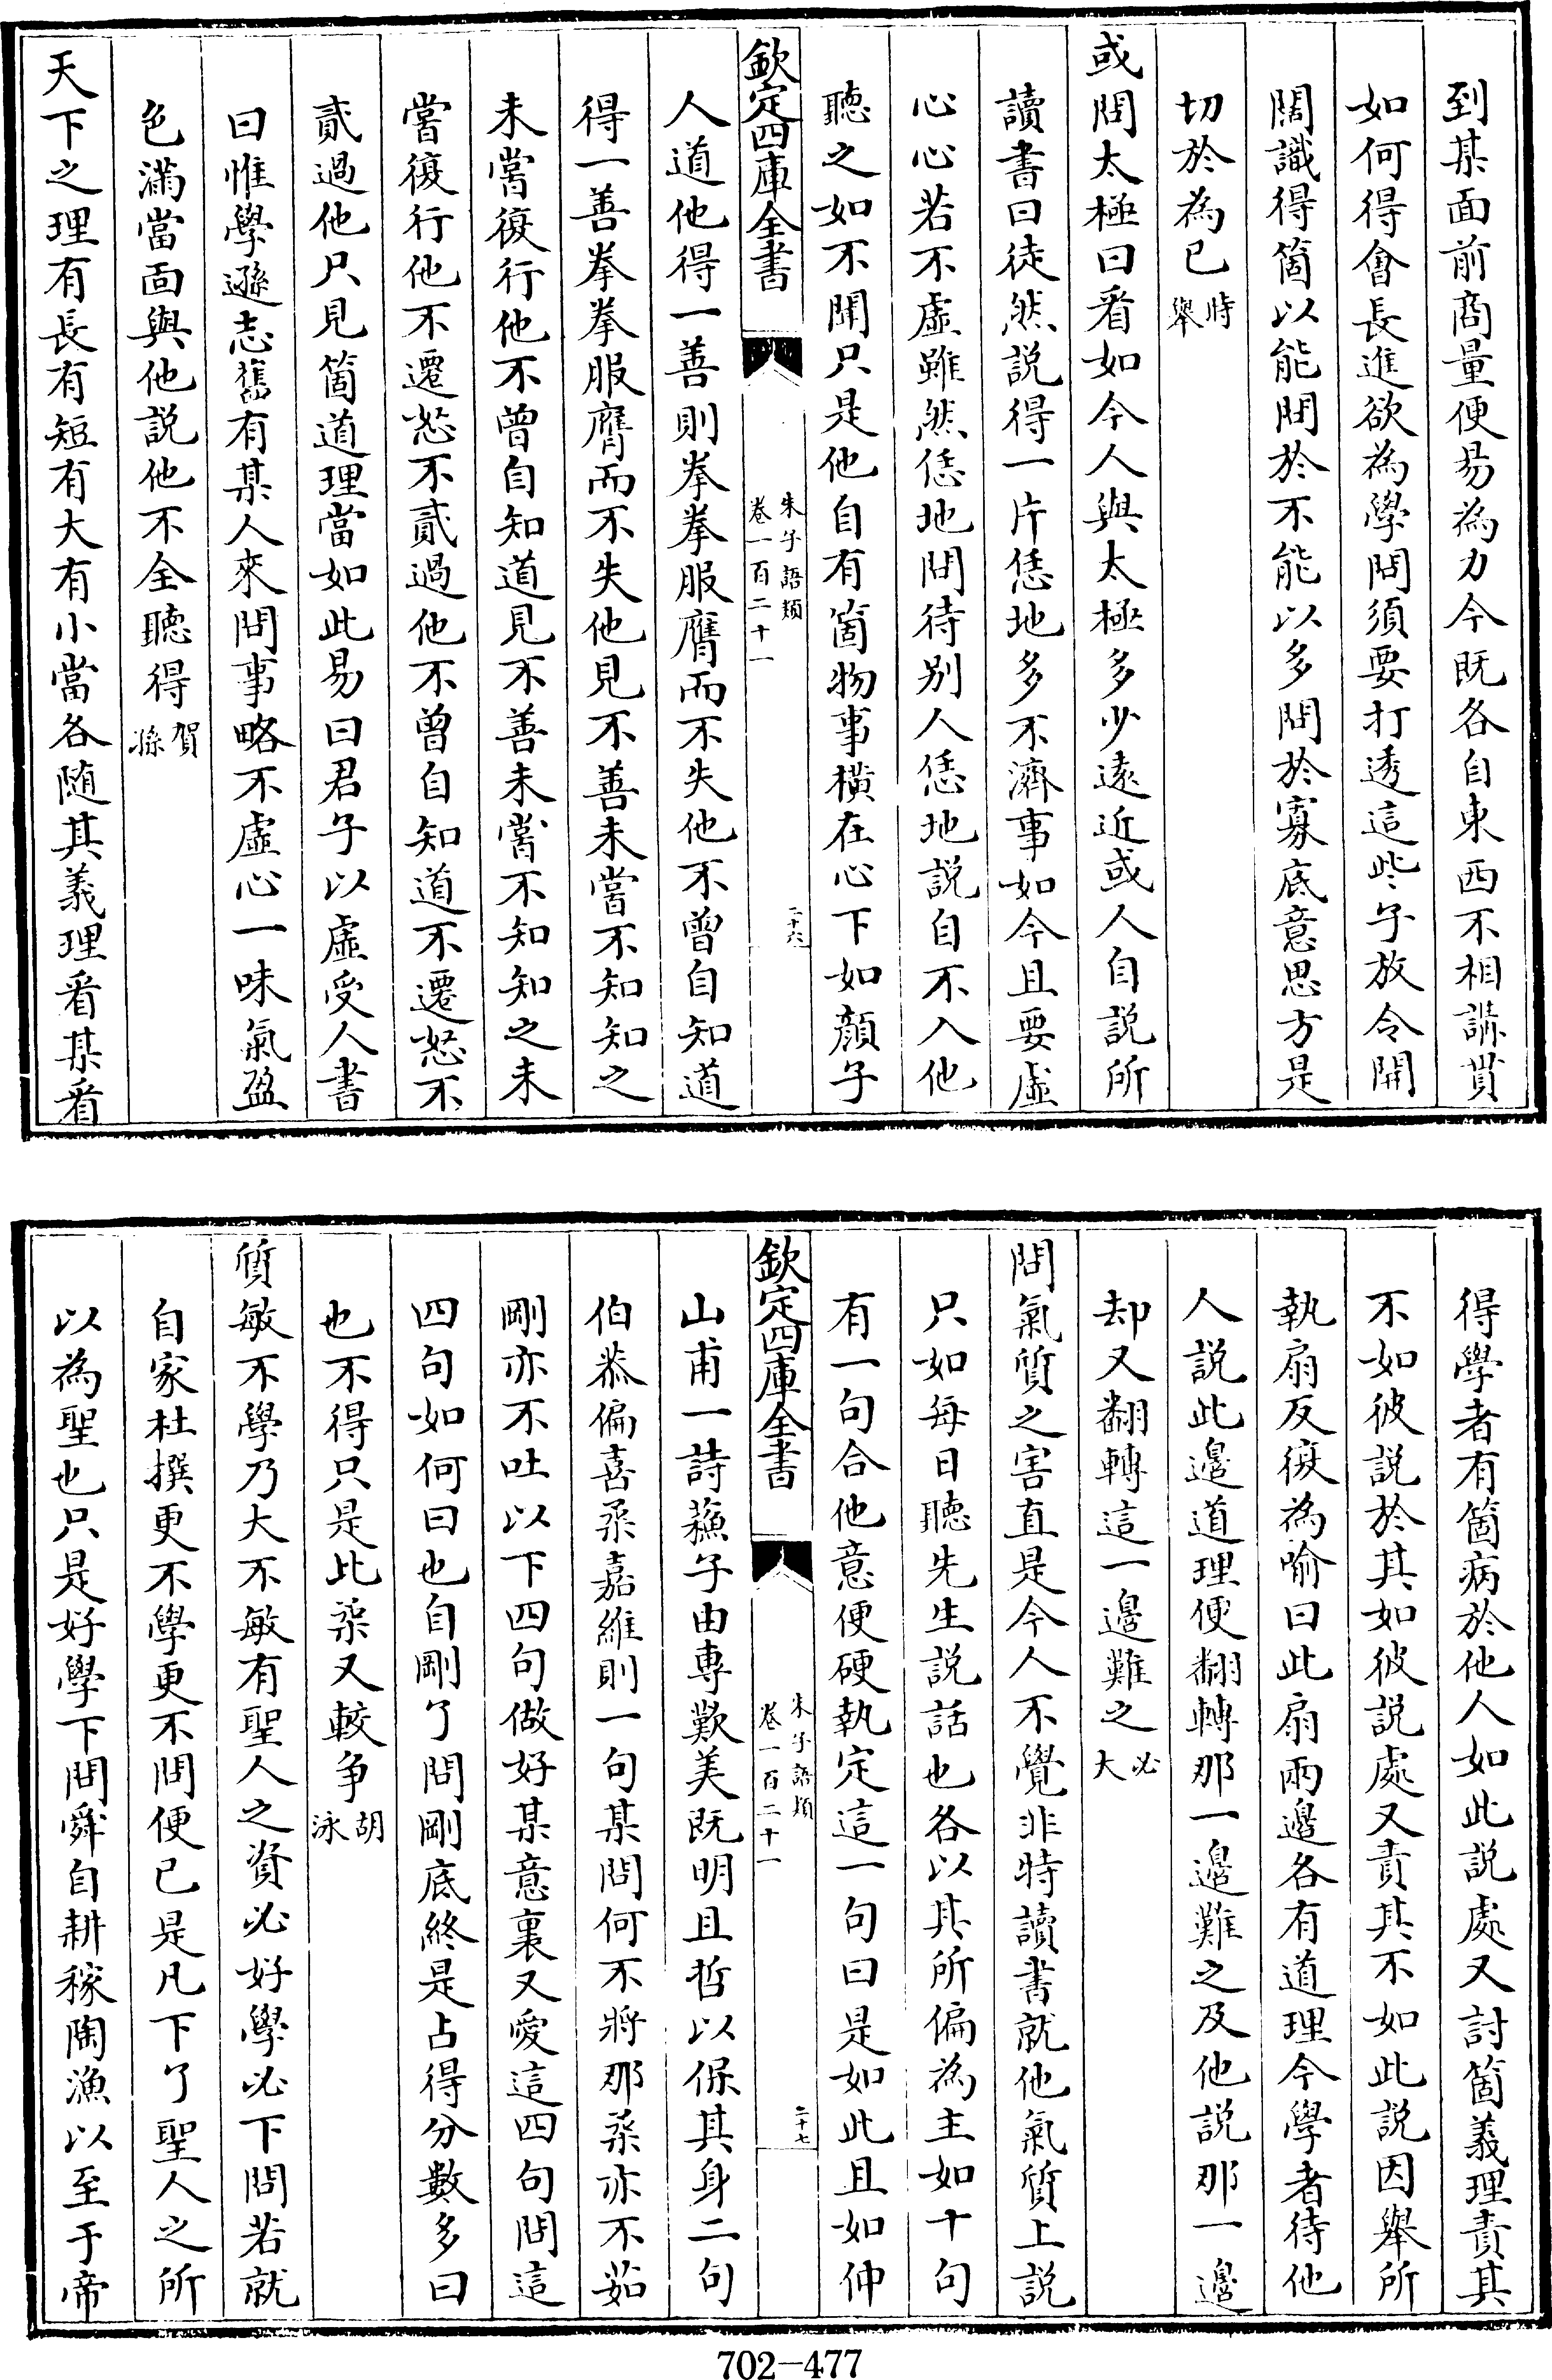 到某面前商量便易為力今既各自東西不相講貫
如何得會長進欲為學問須要打透這些子放令開
闊識得箇以能問於不能以多問於寡底意思方是
切於為己時舉
或問太極曰看如今人與太極多少遠近或人自説所
讀書曰徒然説得一片恁地多不濟事如今且要虚
心心若不虚雖然恁地問待别人恁地説自不入他
聽之如不聞只是他自有箇物事横在心下如顔子
欽定四庫全書
朱子語類
卷一百二十一
二十六
人道他得一善則拳拳服膺而不失他不曾自知道
得一善拳拳服膺而不失他見不善未嘗不知知之
未嘗復行他不曾自知道見不善未嘗不知知之未
嘗復行他不遷怒不貳過他不曾自知道不遷怒不
貳過他只見箇道理當如此易曰君子以虚受人書
曰惟學遜志舊有某人來問事略不虚心一味氣盈
色滿當面與他説他不全聽得賀孫
天下之理有長有短有大有小當各随其義理看某看
得學者有箇病於他人如此説處又討箇義理責其
不如彼説於其如彼説處又責其不如此説因舉所
執扇反復為喻曰此扇兩邊各有道理今學者待他
人説此邊道理便翻轉那一邊難之及他説那一邊
却又翻轉這一邊難之必大
問氣質之害直是今人不覺非特讀書就他氣質上説
只如每日聽先生説話也各以其所偏為主如十句
有一句合他意便硬執定這一句曰是如此且如仲
欽定四庫全書
朱子語類
卷一百二十一
二十七
山甫一詩蘇子由專歎美既明且哲以保其身二句
伯恭偏喜柔嘉維則一句某問何不將那柔亦不茹
剛亦不吐以下四句做好某意裏又愛這四句問這
四句如何曰也自剛了問剛底終是占得分數多曰
也不得只是比柔又較爭胡泳
質敏不學乃大不敏有聖人之資必好學必下問若就
自家杜撰更不學更不問便已是凡下了聖人之所
以為聖也只是好學下問舜自耕稼陶漁以至于帝
702-477